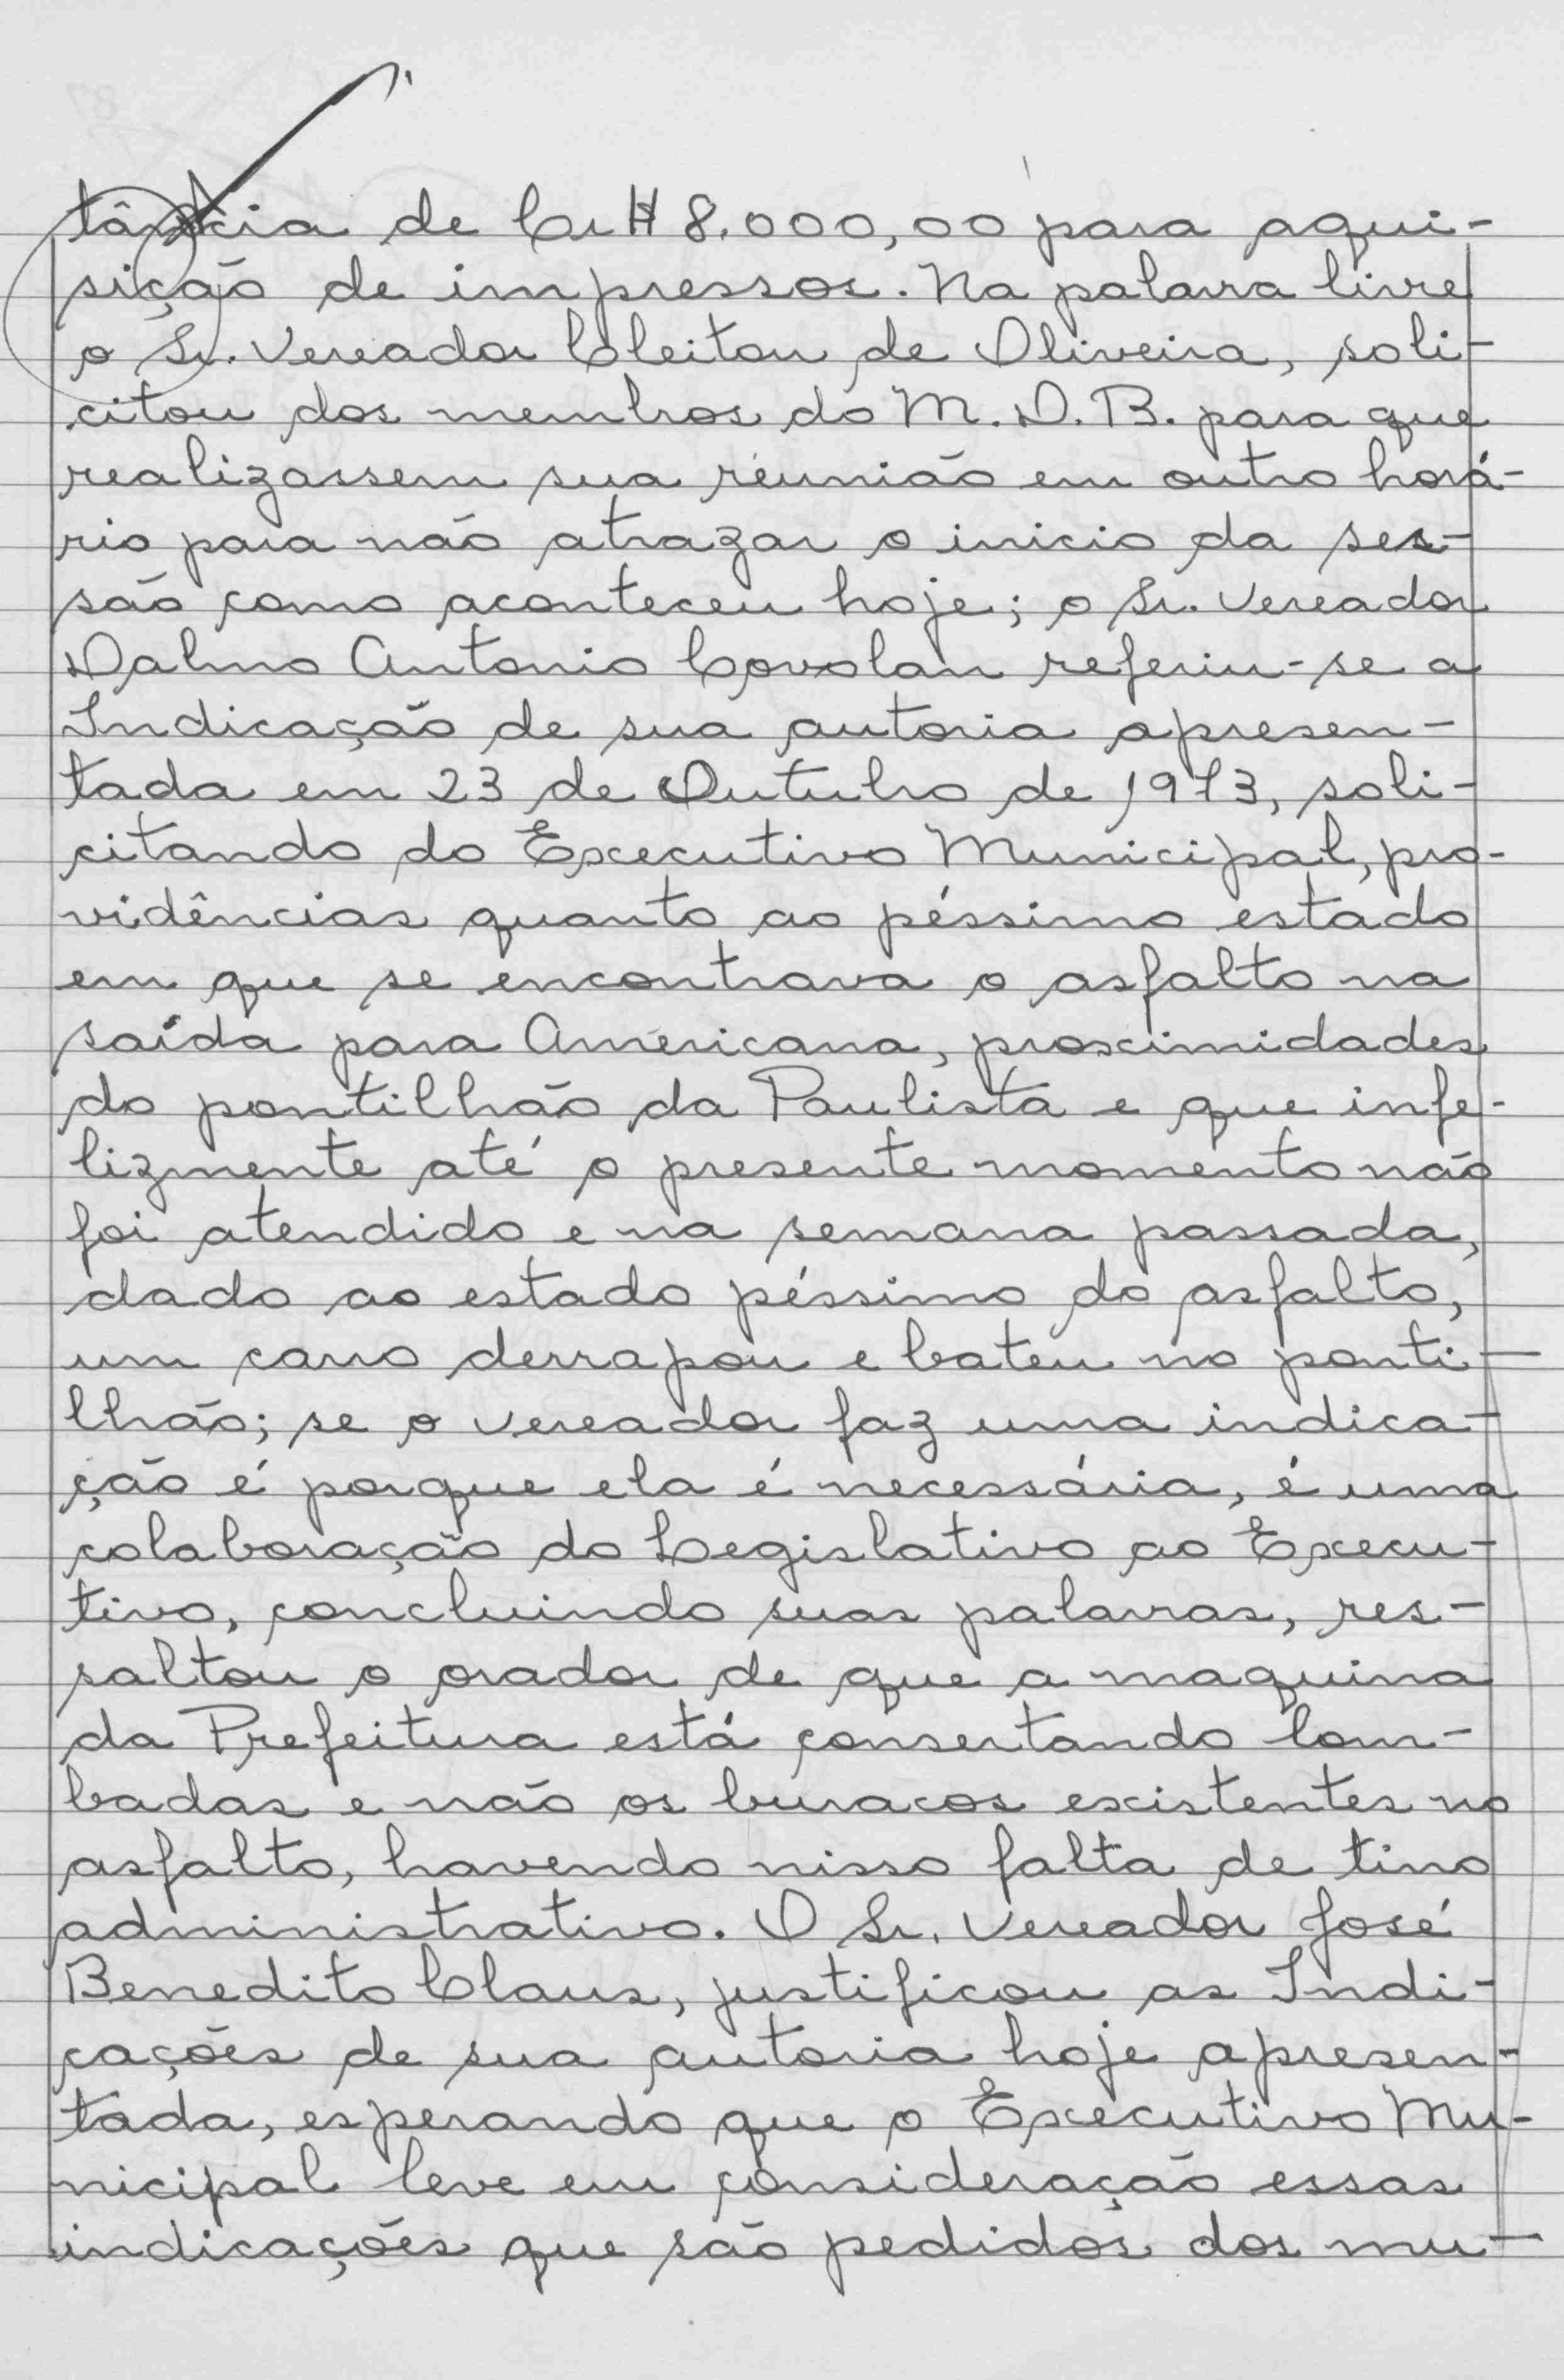 tância de Cr$ 8.000,00 para aqui-
sição de impressos. Na palavra livre
o Sr. Vereador Cleiton de Oliveira, soli-
citou dos membros do M.D.B. para que
realizassem sua reunião em outro horá-
rio para não atrazar o inicio da ses-
são como aconteceu hoje; o Sr. Vereador
Dalmo Antonio Covolan referiu-se a
Indicação de sua autoria apresen-
tada em 23 de Outubro de 1973, soli-
citando do Executivo Municipal, pro-
vidências quanto ao péssimo estado
em que se encontrava o asfalto na
saída para Americana, proximidades
do pontilhão da Paulista e que infe-
lizmente até o presente momento não
foi atendido e na semana passada,
dado ao estado péssimo do asfalto,
um carro derrapou e bateu no ponti-
lhão; se o vereador faz uma indica-
ção é porque ela é necessária, é uma
colaboração do Legislativo ao Execu-
tivo, concluindo suas palavras, res-
saltou o orador de que a maquina
da Prefeitura está consertando lom-
badas e não os buracos existentes no
asfalto, havendo nisso falta de tino
administrativo. O Sr. Vereador José
Benedito Claus, justificou as Indi-
cações de sua autoria hoje apresen-
tada, esperando que o Executivo Mu-
nicipal leve em consideração essas
indicações que são pedidos dos mu-